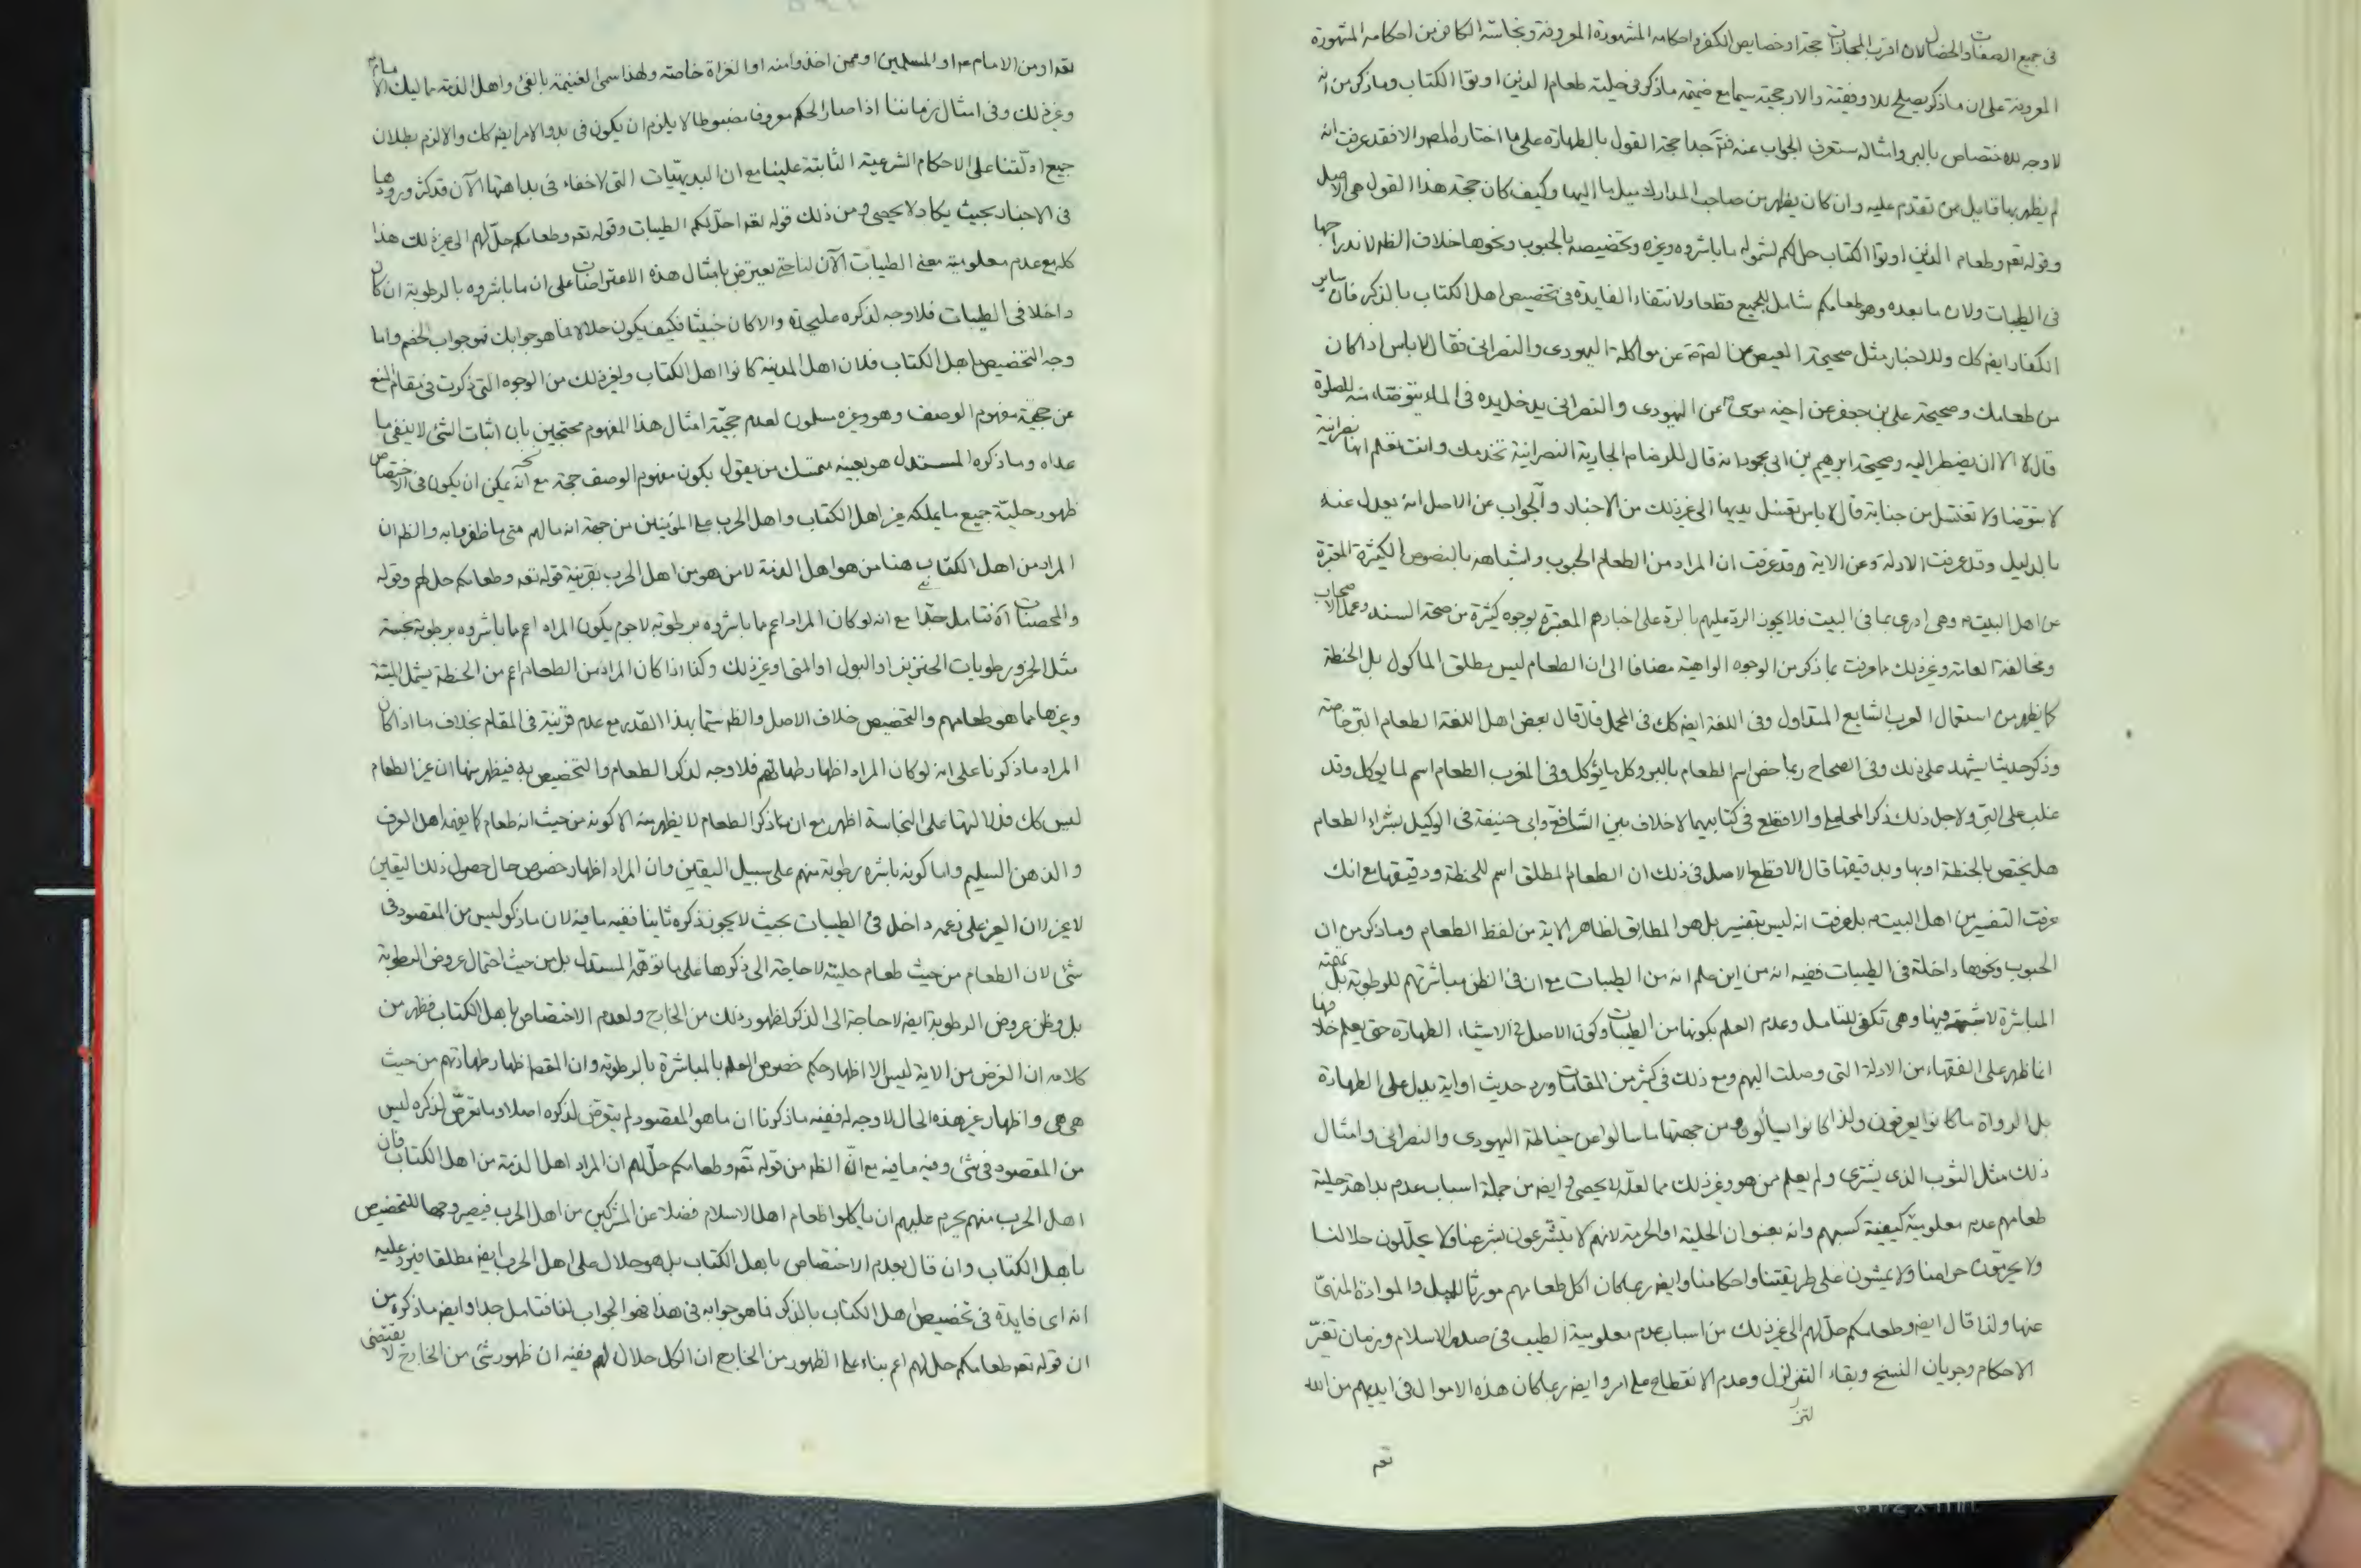 في جميع الصفات والخصال لان اقرب المجازات حجة او خصايص الكفر واحكامه المشهورة المعروفة ونجاسة الكافر من احكامه المشهورة
المعروفة على ان ما ذكر يصلح للاوفقية والارجحية سيما مع ضميمة ما ذكر في حلية طعام الذين اوتوا الكتاب وما ذكر من انه
لا وجه للاختصاص بالبر وامثاله ستعرف الجواب عنه فتر جدا حجة القول بالطهارة على ما اختاره المصر والا فقد عرفت انه
لم يظهر بها قايل من تقدم عليه وان كان يظهر من صاحب المدارك ميل ما اليها وكيف كان حجة هذا القول هي الاصل
وقوله تعم وطعام الذين اوتوا الكتاب حل لكم لشموله ما باشروه وغيره وتخصيصه بالحبوب ونحوها خلاف الظم لاندراجها
في الطيبات ولان ما بعده وهو طعامكم شامل للجميع قطعا ولانتفاء الفايدة في تخصيص اهل الكتاب بالذكر فان ساير
الكفار ايضم كك وللاخبار مثل صحيحة العيص عن الصم عن مواكلة اليهودي والنصراني فقال لا باس اذا كان
من طعامك وصحيحة علي بن جعفر عن اخيه موسى عن اليهودي والنصراني يدخل يده في الماء يتوضاء منه للصلوة
قال لا الا ان يضطر اليه وصحيحة ابرهيم بن ابي محمود انه قال للرضا م الجارية النصرانية تخدمك وانت تعلم انها نصرانية
لا تتوضا ولا تغتسل من جنابة قال لا باس تغسل يديها الى غير ذلك من الاخبار والجواب عن الاصل انه يعدل عنه
بالدليل وقد عرفت الادلة وعن الاية وقد عرفت ان المراد من الطعام الحبوب واشباهه بالنصوص الكثيرة المعتبرة
عن اهل البيت م وهي ادرى بما في البيت فلا يجوز الرد عليهم بالرد على اخبارهم المعتبرة بوجوه كثيرة من صحة السند وعمل الاصحاب
ومخالفة العامة وغير ذلك ما عرفت بما ذكر من الوجوه الواهية مضافا الى ان الطعام ليس مطلق الماكول بل الحنطة
كما يظهر من استعمال العرب الشايع المتداول وفي اللغة ايضم كك في المجمل فان قال بعض اهل اللغة الطعام البر خاصة
وذكر حديثا يشهد على ذلك وفي الصحاح ربما خص اسم الطعام بالبر وكل ما يؤكل وفي المغرب الطعام اسم لما يوكل وقد
غلب على البر ولاجل ذلك ذكر المحاملي والاقطع في كتابيهما لا خلاف بين الشافع وابي حنيفة في الوكيل بشراء الطعام
هل يختص بالحنطة او بها وبدقيقها قال الاقطع الاصل في ذلك ان الطعام المطلق اسم للحنطة ودقيقها مع انك
عرفت التفسير من اهل البيت م بل عرفت انه ليس بتفسير بل هو المطابق لظاهر الاية من لفظ الطعام وما ذكر من ان
الحبوب ونحوها داخلة في الطيبات ففيه انه من اين علم انه من الطيبات مع ان في الظن مباشرتهم للرطوبة بل
المباشرة لا شبهة فيها وهي تكفي للتامل وعدم العلم بكونها من الطيبات وكون الاصل في الاشياء الطهارة حتى يعلم خلافها
انما ظهر على الفقهاء من الادلة التي وصلت اليهم ومع ذلك في كثير من المقامات ورد حديث او اية يدل على الطهارة
بل الرواة ما كانوا يعرفون ولذا كانوا يسالون ومن جهتها ما سالوا عن مخالطة اليهودي والنصراني وامثال
ذلك مثل الثوب الذي يشترى ولم يعلم ممن هو وغير ذلك مما لعله لا يحصى وايضم من جملة اسباب عدم بداهة حلية
طعامهم عدم معلومية كيفية كسبهم وانه بعنوان الحلية او الحرمة لانهم لا يتشرعون بشرعنا ولا يحللون حلالنا
ولا يحرمون حرامنا ولا يمشون على طريقتنا واحكامنا وايضم ربما كان اكل طعامهم مورثا للميل والموادة المنهي
عنها ولذا قال ايضم وطعامكم حل لهم الى غير ذلك من اسباب عدم معلومية الطيب في صدر الاسلام وزمان تغير
الاحكام وجريان النسخ وبقاء التزلزل وعدم الانقطاع على امر وايضم ربما كان هذه الاموال في ايديهم من الله
تعم
تعم او من الامام م او المسلمين او ممن اخذوا منه او الغزاة خاصة ولهذا سمى الغنيمة بالفئ واهل الذمة مماليك الامام
وغير ذلك وفي امثال زماننا اذا صار الحكم معروفا مضبوطا لا يلزم ان يكون في بدو الامر ايضم كك والا لزم بطلان
جميع ادلتنا على الاحكام الشرعية الثابتة علينا مع ان البديهيات التي لا خفاء في بداهتها الآن قد كثر ورودها
في الاخبار بحيث يكاد لا يحصى ومن ذلك قوله تعم احل لكم الطيبات وقوله تعم وطعامكم حل لهم الى غير ذلك هذا
كله مع عدم معلومية معنى الطيبات الآن لنا حتى يعترض بامثال هذه الاعتراضات على ان ما باشروه بالرطوبة ان كان
داخلا في الطيبات فلا وجه لذكره عليحدة والا كان خبيثا فكيف يكون حلالا فما هو جوابك فهو جواب الخصم واما
وجه التخصيص باهل الكتاب فلان اهل المدينة كانوا اهل الكتاب ولغير ذلك من الوجوه التي ذكرت في مقام المنع
عن حجية مفهوم الوصف وهو وغيره مسلمون لعدم حجية امثال هذا المفهوم محتجين بان اثبات الشئ لا ينفي ما
عداه وما ذكره المستدل هو بعينه متمسك من يقول بكون مفهوم الوصف حجة مع انه يمكن ان يكون في الاختصاص
ظهور حلية جميع ما يملكه غير اهل الكتاب واهل الحرب على المؤمنين من جهة انه مالهم متى ما ظفروا به والظم ان
المراد من اهل الكتاب هنا من هو اهل الذمة لا من هو من اهل الحرب بقرينة قوله تعم وطعامكم حل لهم وقوله
والمحصنات آه فتامل جدا مع انه لو كان المراد اعم ما باشروه برطوبة لا جرم يكون المراد اعم ما باشروه برطوبة نجسة
مثل الخمر ورطوبات الخنزير او البول او المني او غير ذلك وكذا اذا كان المراد من الطعام اعم من الحنطة يشمل الميتة
وغيرها مما هو طعامهم والتخصيص خلاف الاصل والظم سيما بهذا القدر مع عدم قرينة في المقام بخلاف ما اذا كان
المراد ما ذكرنا على انه لو كان المراد اظهار طهارتهم فلا وجه لذكر الطعام والتخصيص به فيظهر منها ان غير الطعام
ليس كك فدلالتها على النجاسة اظهر مع ان ما ذكر الطعام لا يظهر منه الا كونه من حيث انه طعام كما يفهمه اهل العرف
والذهن السليم واما كونه باشره برطوبة منهم على سبيل اليقين وان المراد اظهار خصوص حال حصول ذلك اليقين
لا غير لان الغير على زعمه داخل في الطيبات بحيث لا يجوز ذكره ثانيا ففيه ما فيه لان ما ذكر ليس من المقصود في
شئ لان الطعام من حيث طعام حليته لا حاجة الى ذكرها على ما توهم المستدل بل من حيث احتمال عروض الرطوبة
بل وظن عروض الرطوبة ايضم لا حاجة الى الذكر لظهور ذلك من الخارج ولعدم الاختصاص باهل الكتاب فظهر من
كلامه ان الغرض من الاية ليس الا اظهار حكم خصوص العلم بالمباشرة بالرطوبة وان المقصم اظهار طهارتهم من حيث
هي هي واظهار غير هذه الحال لا وجه له ففيه ما ذكرنا ان ما هو المقصود لم يتعرض لذكره اصلا وما تعرض لذكره ليس
من المقصود في شئ وفيه ما فيه مع ان الظم من قوله تعم وطعامكم حل لهم ان المراد اهل الذمة من اهل الكتاب فان
اهل الحرب منهم يحرم عليهم ان ياكلوا طعام اهل الاسلام فضلا عن المشركين من اهل الحرب فيصير وجها للتخصيص
باهل الكتاب وان قال بعدم الاختصاص باهل الكتاب بل هو حلال على اهل الحرب ايضم مطلقا فيرد عليه
انه اي فايدة في تخصيص اهل الكتاب بالذكر فما هو جوابه في هذا فهو الجواب لنا فتامل جدا وايضم ما ذكره من
ان قوله تعم طعامكم حل لهم اعم بناء على الظهور من الخارج ان الكل حلال لهم ففيه ان ظهور شئ من الخارج لا يقتضي